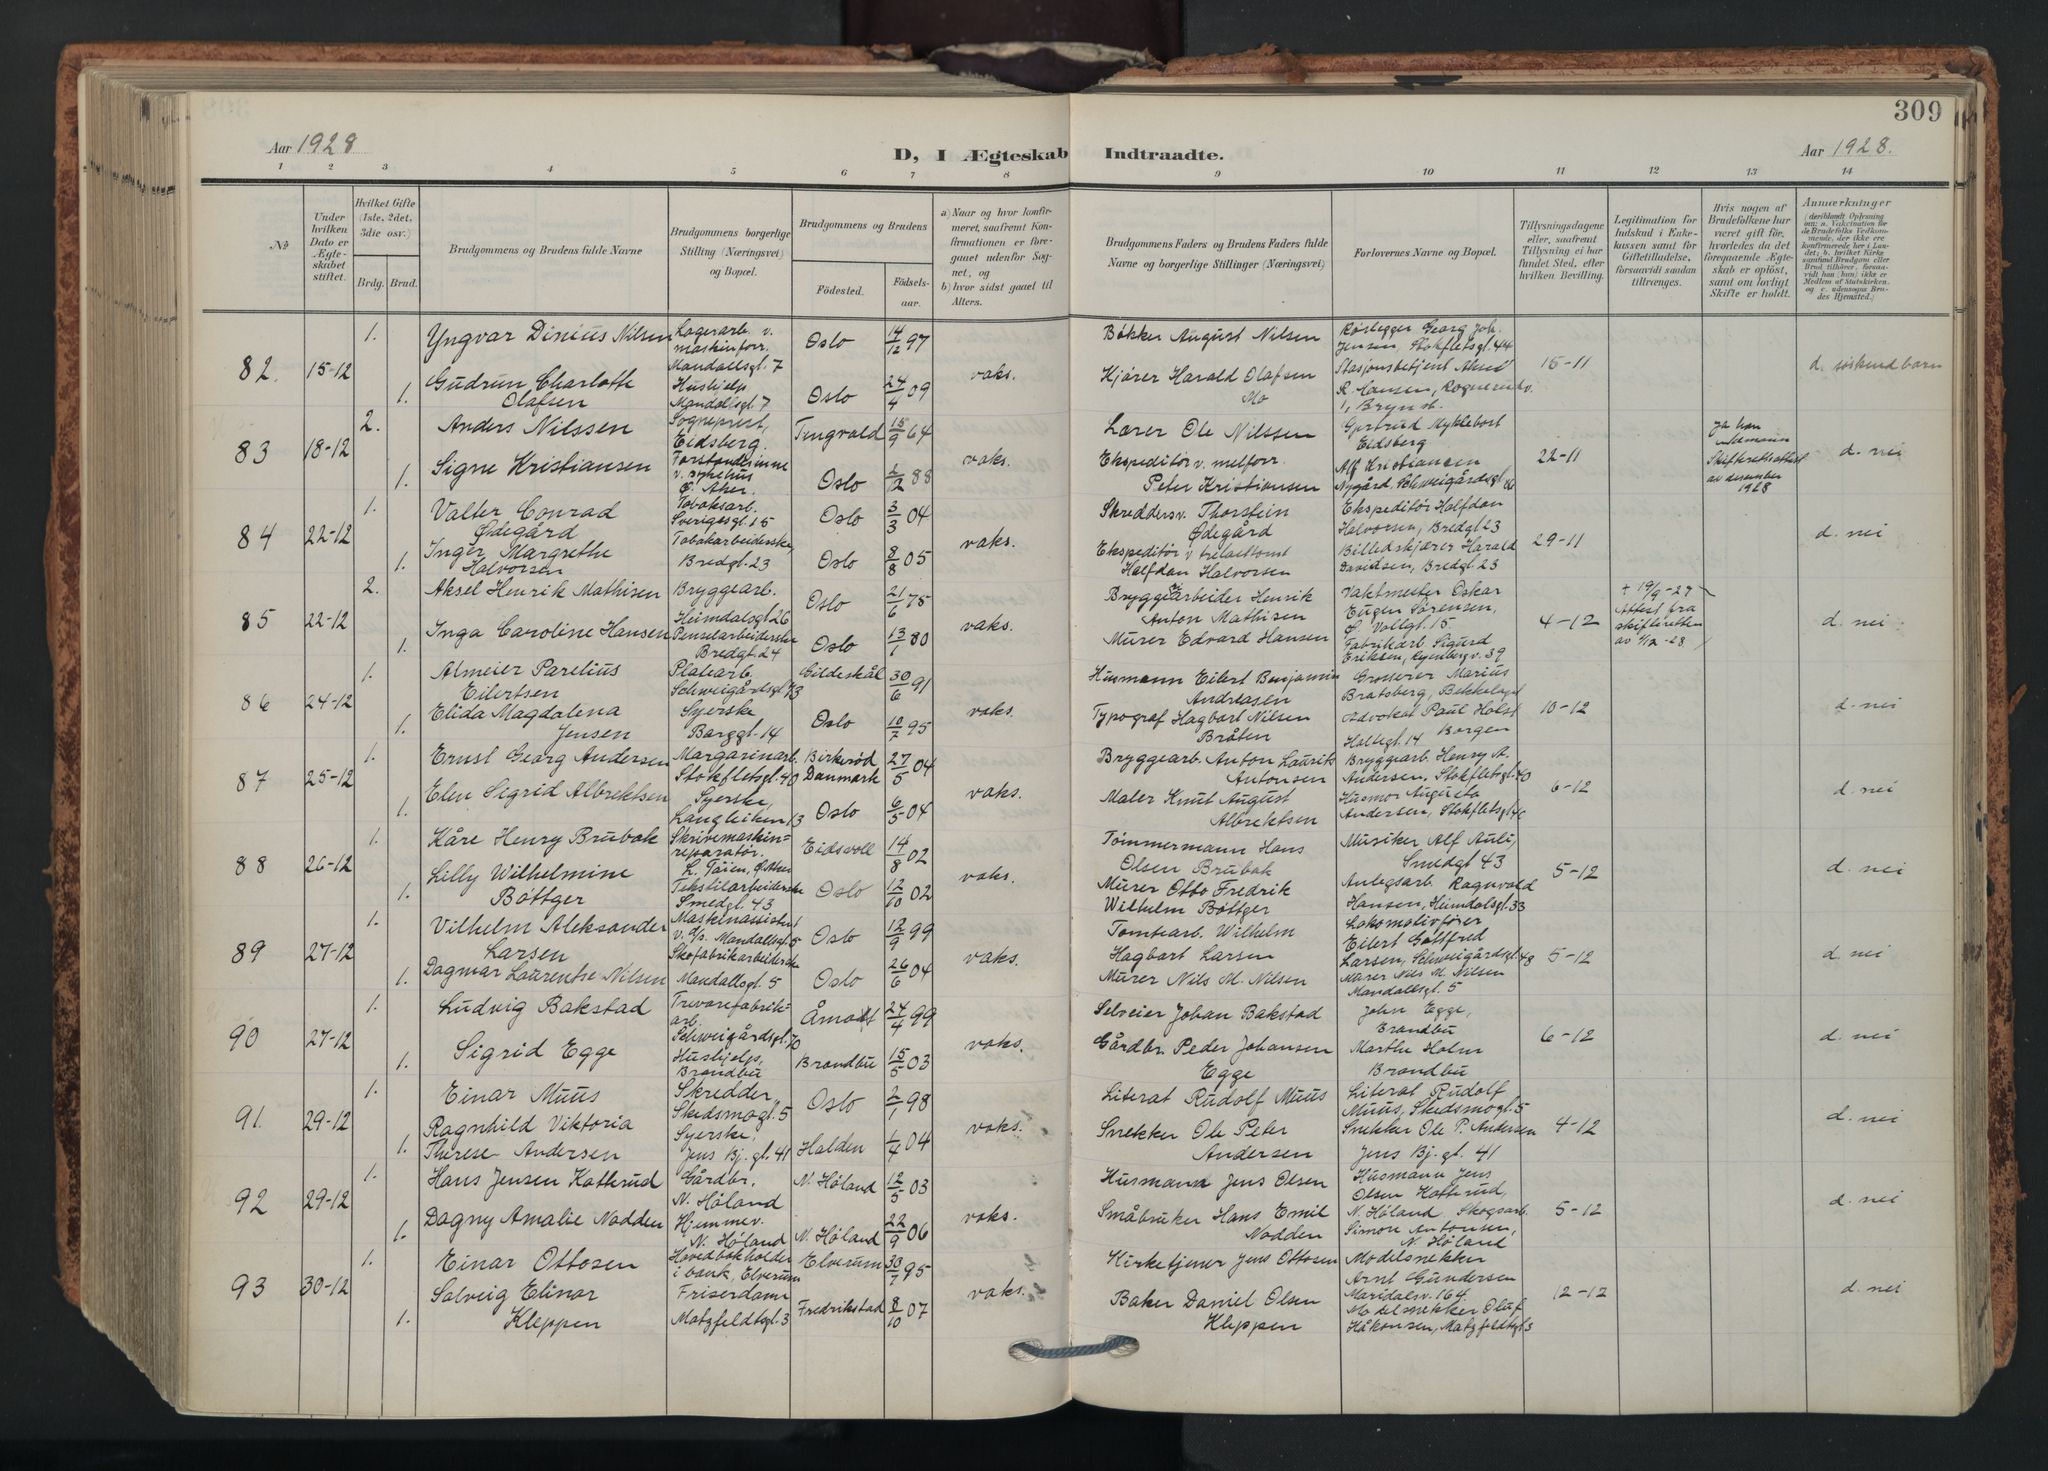 309
Aar 1928
D, I Ægteskab Indtraadte.
Aar 1928.
1 2 3 4 5 6 7 8 9 10 11 12 13 14
No
Under hvilken Dato er Ægteskabet stiftet.
Hvilket Gifte (1ste, 2det, 3die osv.)
Brdg. Brud.
Brudgommens og Brudens fulde Navne
Brudgommens borgerlige Stilling (Næringsvei) og Bopæl.
Brudgommens og Brudens
Födested.
Födsels-aar.
a) Naar og hvor konfirmeret, saafremt Konfirmationen er foregaaet udenfor Sognet, og
b) hvor sidst gaaet til Alters.
Brudgommens Faders og Brudens Faders fulde Navne og borgerlige Stillinger (Næringsvei)
Forlovernes Navne og Bopæl.
Tillysningsdagene eller, saafremt Tillysning ei har fundet Sted, efter hvilken Bevilling.
Legitimation for Indskud i Enkekassen samt for Giftetilladelse, forsaavidt saadan tiltrænges.
Hvis nogen af Brudefolkene har været gift för, hvorledes da det foregaaende Ægteskab er oplöst, samt om lovligt Skifte er holdt.
Anmærkninger
82. 15-12
1. Yngvar Dinius Nilsen Lagerarb. v. maskinforr. Mandallsgt. 7 Oslo 14/12 97
1. Gudrun Charlotte Olafsen Hushjelp Mandallsgt. 7 Oslo 24/4 09
vaks.
Bøkker August Nilsen
Kjører Harald Olafsen Mo
Rørlegger Georg Joh. Jensen, Stokfletsgt. 44
Stasjonsbetjent
R. Hansen, 1, Brynsb.
15-11
d. søskendbarn
83 18-12
2. Anders Nilssen Sogneprest, Eidsberg. Tingvold 15/9 64
1. Signe Kristiansen Forstanderinne v. sykehus Ø. Aker. Oslo 2/12 88
vaks.
Lærer Ole Nilssen
Ekspeditør v. melforr. Peter Kristiansen
Gjertrud Myklebost Eidsberg
Alf Kristiansen Nygård, Schweigårdsgt 86
22-11
ja han enkemann Skifterettsattest av desember 1928
d. nei
84 22-12
1. Valter Conrad Ødegård Tobaksarb. Sverigesgt. 15 Oslo 3/3 04
1. Inger Margrethe Halvorsen Tobakarbeiderske Bredgt. 23 Oslo 8/8 05
vaks.
Skreddersv. Thorstein Ødegård
Ekspeditør v. Halfdan Halvorsen
Ekspeditør Halfdan Halvorsen, Bredgt 23
Billedskjærer Harald Davidsen, Bredgt. 23
29-11
d. nei
85 22-12
2. Aksel Henrik Mathisen Bryggearb. Heimdalsgt 26 Oslo 21/6 78
1. Inga Caroline Hansen Penselarbeiderske Bredgt. 24 Oslo 13/1 80
vaks.
Bryggearbeider Henrik Anton Mathisen
Murer Edvard Hansen
Vaktmester Oskar Eugen Sørensen, Ø. Vollgt. 15
Fabrikarb. Sigurd Eriksen, Ryenbergv. 39
4-12
+ 19/9-27
Attest fra skifteretten av 4/12-28
d. nei
86 24-12
1. Almeier Parelius Eilertsen Platearb. Schweigårdsgt 73 Gildeskål 30/6 91
1. Elida Magdalena Jensen Syerske Borggt. 14 Oslo 10/7 95
vaks.
Husmann Eilert Benjamin Andreasen
Typograf Hagbart Nilsen Bråten
Grosserer Marius Bratsberg, Bekkelaget
Advokat Paul Holst Borgen Holtegt. 14
10-12
d. nei
87 25-12
1. Ernst Georg Andersen Margarinarb. Stokfletsgt. 40 Birkerød Danmark 27/5 04
1. Elen Sigrid Albrektsen Syerske, Langleiken 13 Oslo 6/5 04
vaks.
Bryggearb. Anton Laurits Antonsen
Maler Knut August Albrektsen
Bryggearb. Henry A. Andersen, Stokfletsgt. 40
Husmor Augusta Andersen, Stokfletsgt 40
6-12
d. nei
88 26-12
1. Kåre Henry Brubak Skrivemaskinreparatør. L. Tøien, Ø. Aker Eidsvoll 14/8 02
1. Lilly Wilhelmine Bøttger Tekstilarbeiderske Smedgt. 43 Oslo 12/10 02
vaks.
Tømmermann Hans Olsen Brubak
Murer Otto Fredrik Wilhelm Bøttger
Musiker Alf Auli, Smedgt 43
Anlegsarb. Ragnvald Hansen, Heimdalsgt. 33
5-12
d. nei
89 27-12
1. Vilhelm Aleksander Larsen Maskinassistent v. d/s. Mandallsgt 5 Oslo 12/9 99
1. Dagmar Laurentse Nilsen Skofabrikarbeiderske Mandallsgt. 5 Oslo 26/6 04
vaks.
Tomtearb. Wilhelm Hagbart Larsen
Murer Nils M. Nilsen
Lokomotivfører Eilert Gottfred Larsen, Schweigårdsgt 48
Murer Nils M. Nilsen Mandallsgt. 5
5-12
d. nei
90 27-12
1. Ludvig Bakstad Trevarefabrikarb. Schweigårdsgt. 70 Åmodt 24/4 99
1. Sigrid Egge Hushjelp, Brandbu Brandbu 15/5 03
vaks.
Selveier Johan Bakstad
Gårdbr. Peder Johansen Egge
John Egge, Brandbu
Marthe Holm Brandbu
6-12
d. nei
91. 29-12
1. Einar Muus Skredder, Skedsmogt. 5 Oslo 2/1 98
1. Ragnhild Viktoria Therese Andersen Syerske, Jens Bj. gt. 41 Halden 1/4 04
vaks.
Literat Rudolf Muus
Snekker Ole Peter Andersen
Literat Rudolf Muus, Skedsmogt. 5
Snekker Ole P. Andersen Jens Bj. gt. 41
4-12
d. nei
92 29-12
1. Hans Jensen Katterud Gårdbr. N. Høland N. Høland 12/5 03
1. Dagny Amalie Nadden Hjemmev. N. Høland N. Høland 22/9 06
vaks.
Husmann Jens Olsen
Småbruker Hans Emil Nadden
Husmann Jens Olsen Katterud, N. Høland
Skogsarb. Simon Antonsen, N. Høland
5-12
d. nei
93 30-12
1. Einar Ottosen Hovedbokholder i bank, Elverum Elverum 30/7 95
1. Solveig Elinor Kleppen Friserdame Matzfeldtsgt. 3 Fredrikstad 8/10 07
vaks.
Kirketjener Jens Ottosen
Baker Daniel Olsen Kleppen
Modelsnekker Arnt Gundersen Maridalsv. 164.
Modelsnekker Oluf Håkonsen, Matzfeldtsgt 3
12-12
d. nei